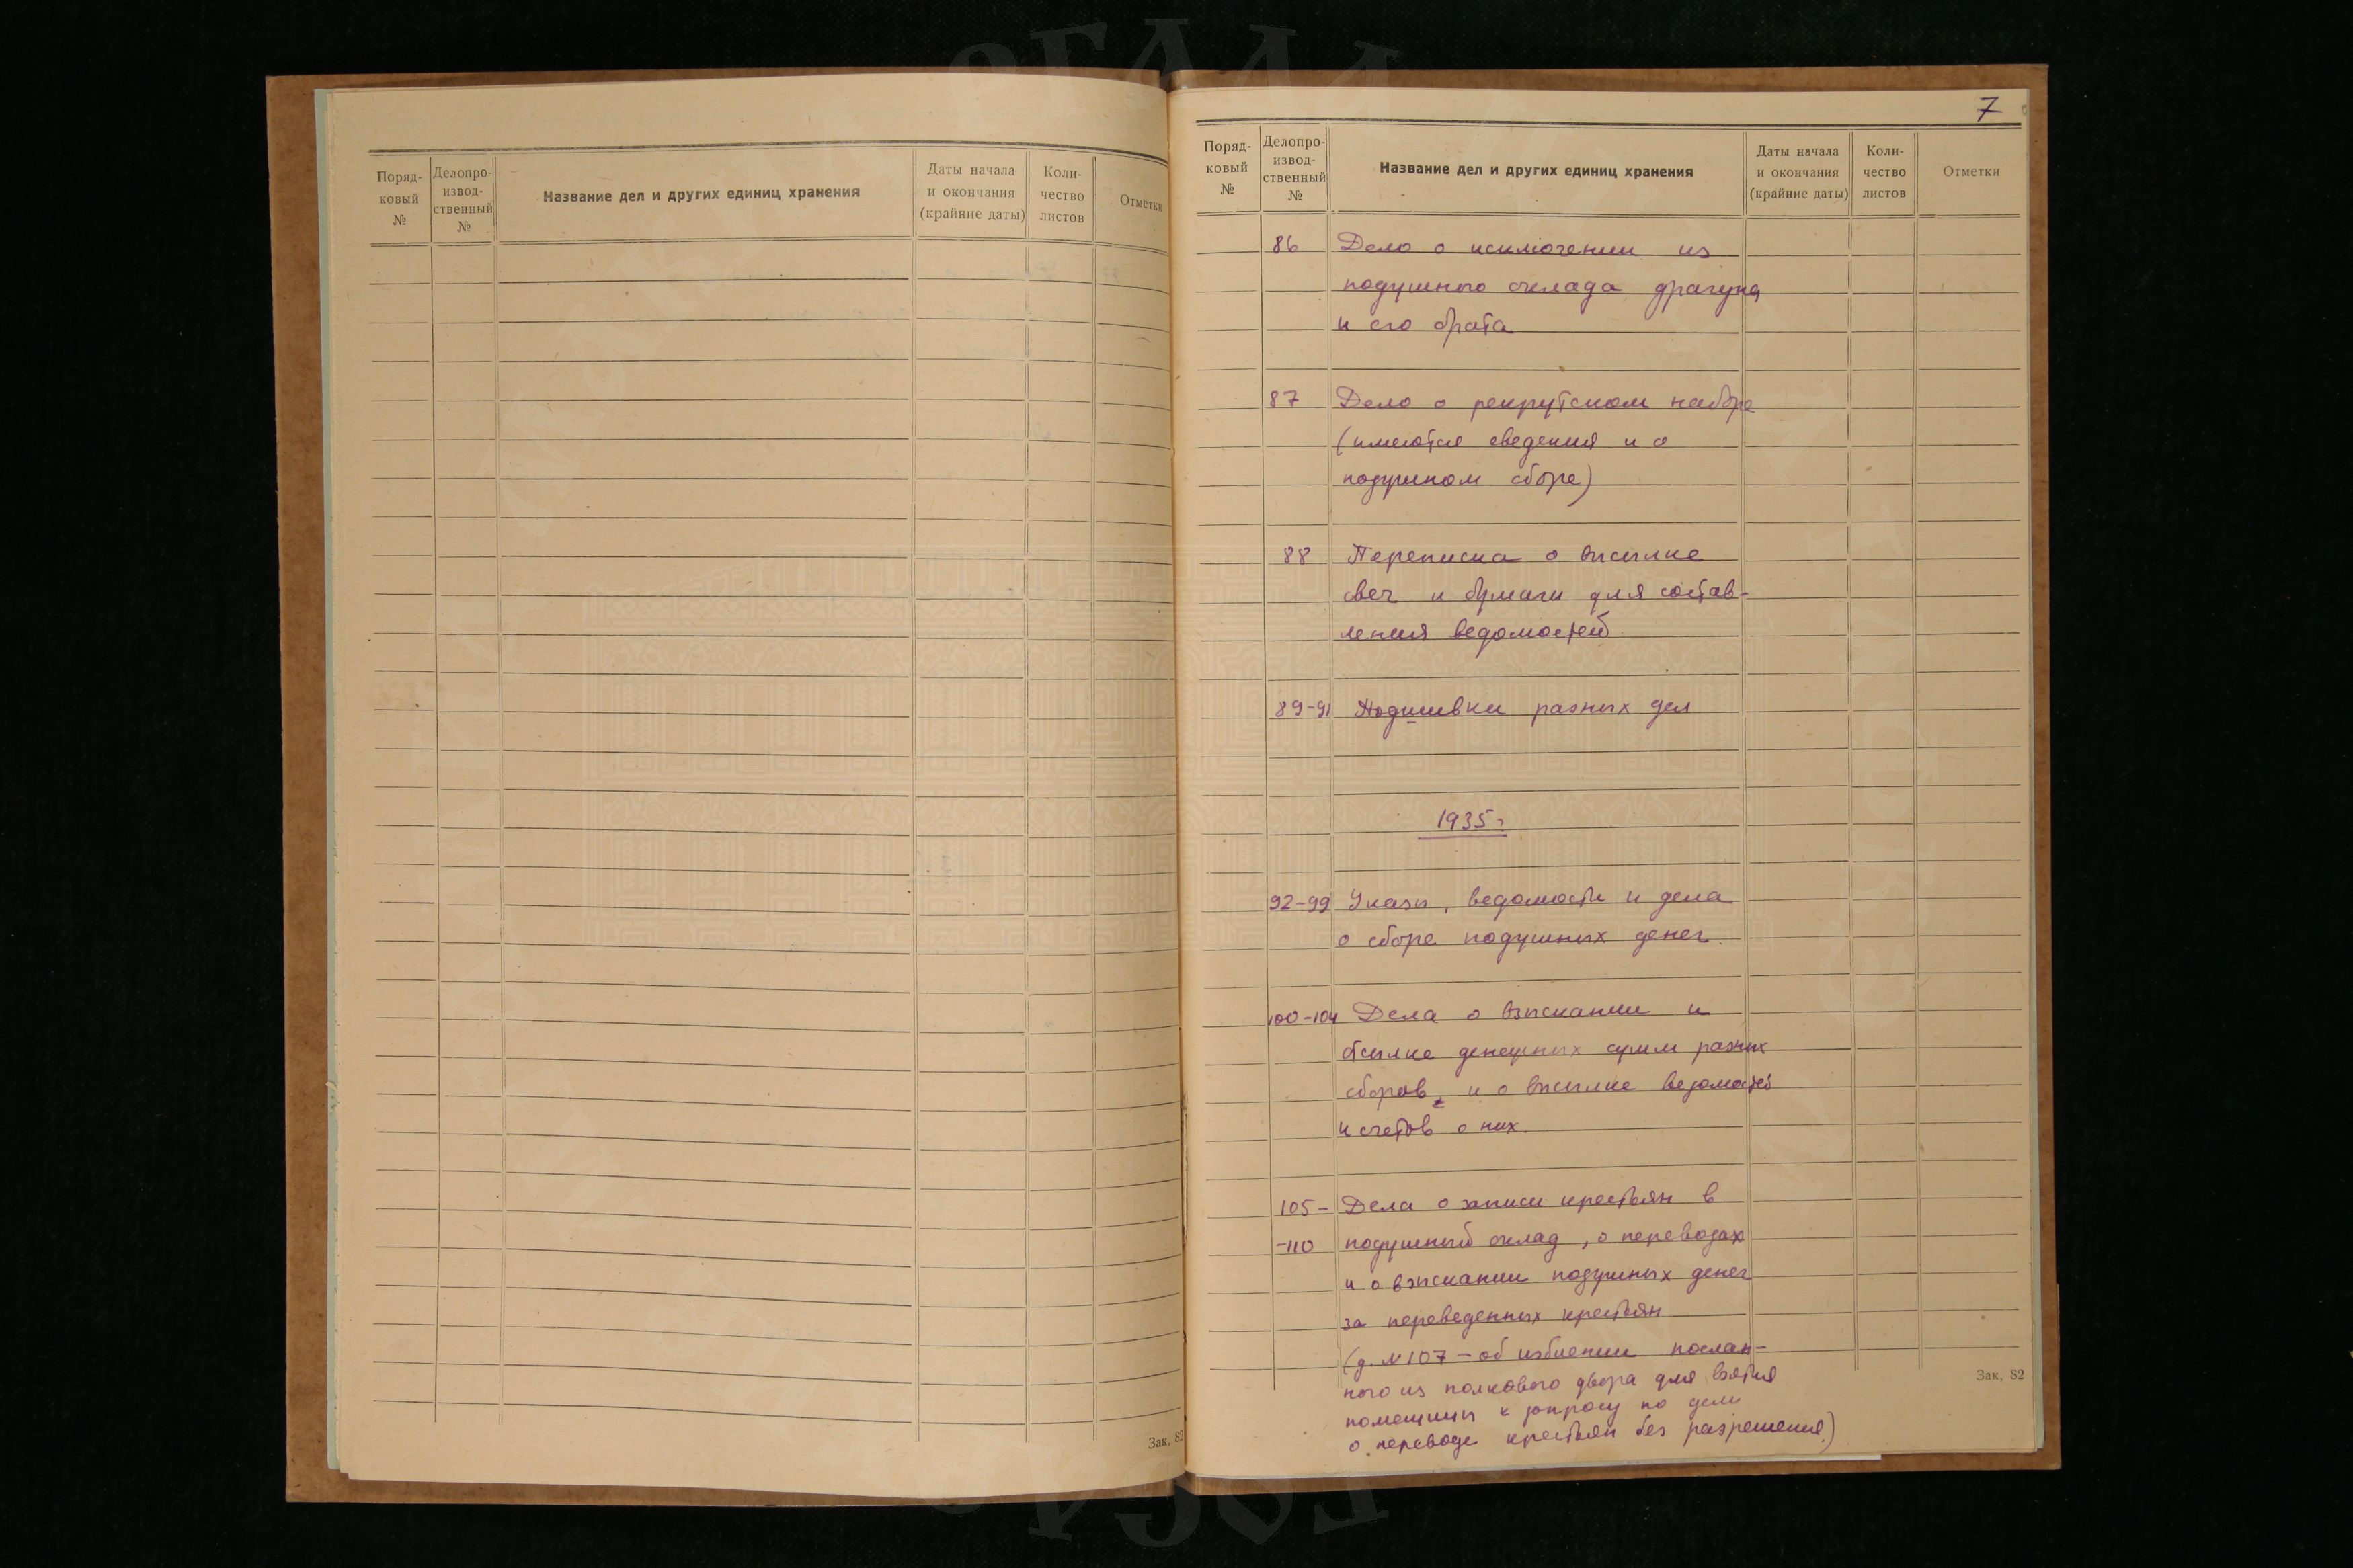 Поряд-
ковый
№
Делопро-
извод-
ственный
№
Название дел и других единиц хранения
Даты начала
и окончания
(крайние даты)
Коли-
чество
листов
Отметки
Зак. 82
7
Поряд-
ковый
№
Делопро-
извод-
ственный
№
Название дел и других единиц хранения
Даты начала
и окончания
(крайние даты)
Коли-
чество
листов
Отметки
86 Дело о исключении из
подушного оклада драгуна
и его брата
87 Дело о рекрутском наборе
(имеются сведения и о
подушном сборе)
88 Переписка о высылке
свеч и бумаги для состав-
ления ведомостей
89-91 Подшивки разных дел
1935 г.
92-99 Указы, ведомости и дела
о сборе подушных денег
100-104 Дела о взыскании и
отсылке денежных сумм разных
сборов, и о высылке ведомостей
и счетов о них.
105- Дела о записи крестьян в
-110 подушный оклад, о переводах
и о взыскании подушных денег
за переведенных крестьян
(д. № 107 - об избиении послан-
ного из полкового двора для взятия
помещицы к допросу по делу
о переводе крестьян без разрешения)
Зак. 82